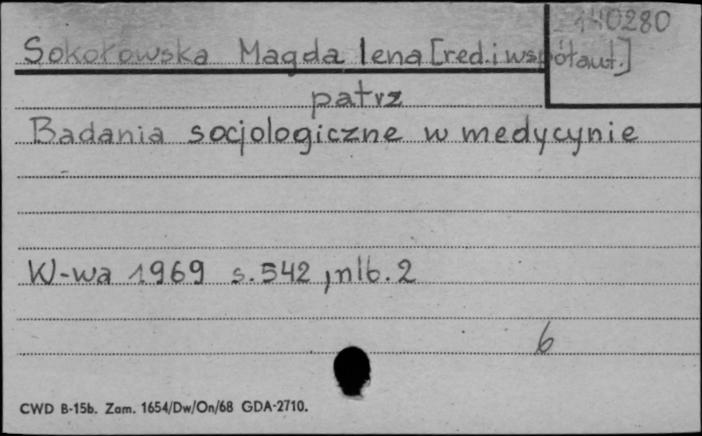 140280
Sokołowska Magdalena [red. i współaut.]
patrz
Badania socjologiczne w medycynie
W-wa 1969 s. 542, nlb. 2
6
CWD B-15b. Zam. 1654/Dw/On/68 GDA-2710.